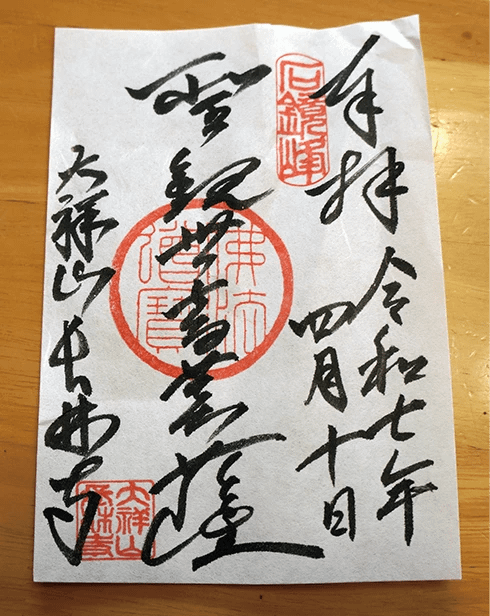 奉拝
令和七年
四月十日
石鏡峰
聖観世音菩薩
佛法僧寶
大祥山長林寺
大祥山
長林寺